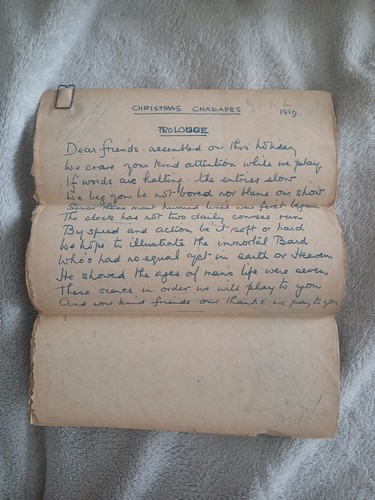 CHRISTMAS CHARADES
1919.
PROLOGUE
Dear friends assembled on this holiday
We crave your kind attention while we play
If words are halting the entries slow
We beg you be not bored nor blame our show
Since these most lines we first began
The clock has not two daily courses run
By speed and action be it soft or hard
We hope to illustrate the immortal Bard
Who's had no equal yet in earth or Heaven
He showed the ages of man's life were seven
These scenes in order we will play to you
And now kind friends our thanks we pay to you